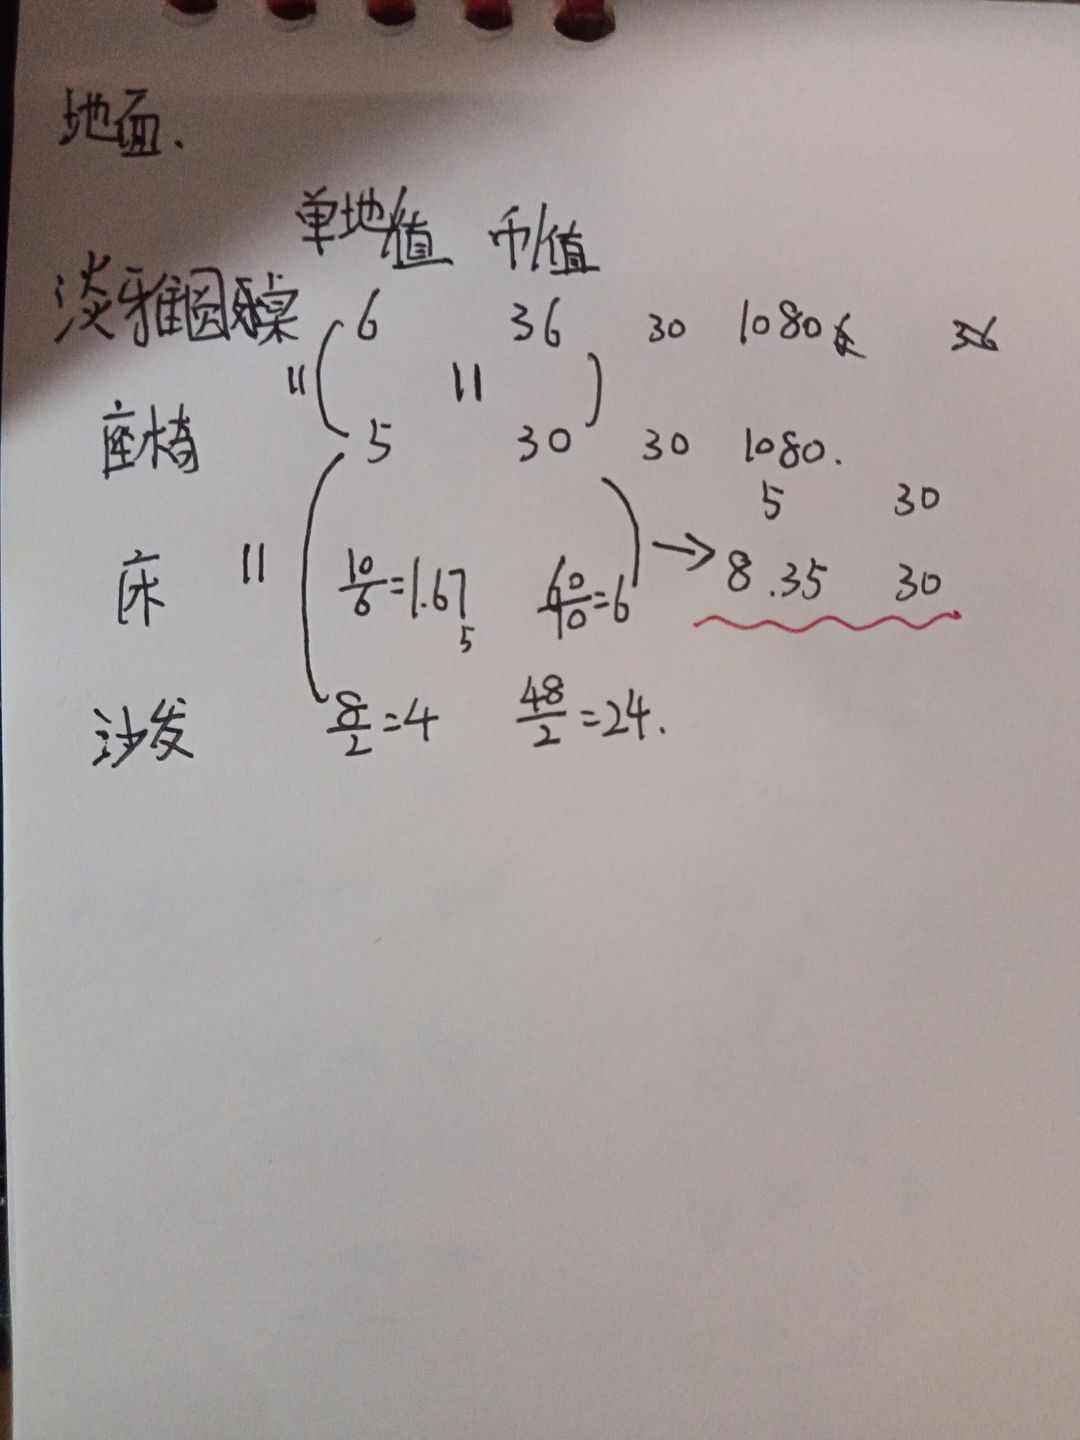 地面.
单地值 币值
淡雅圆桌 6 36 30 1080 36
" ( 11 )
座椅 5 30 30 1080.
5 30
床 11 10/6=1.67 60/10=6 → 8.35 30
5
沙发 8/2=4 48/2=24.